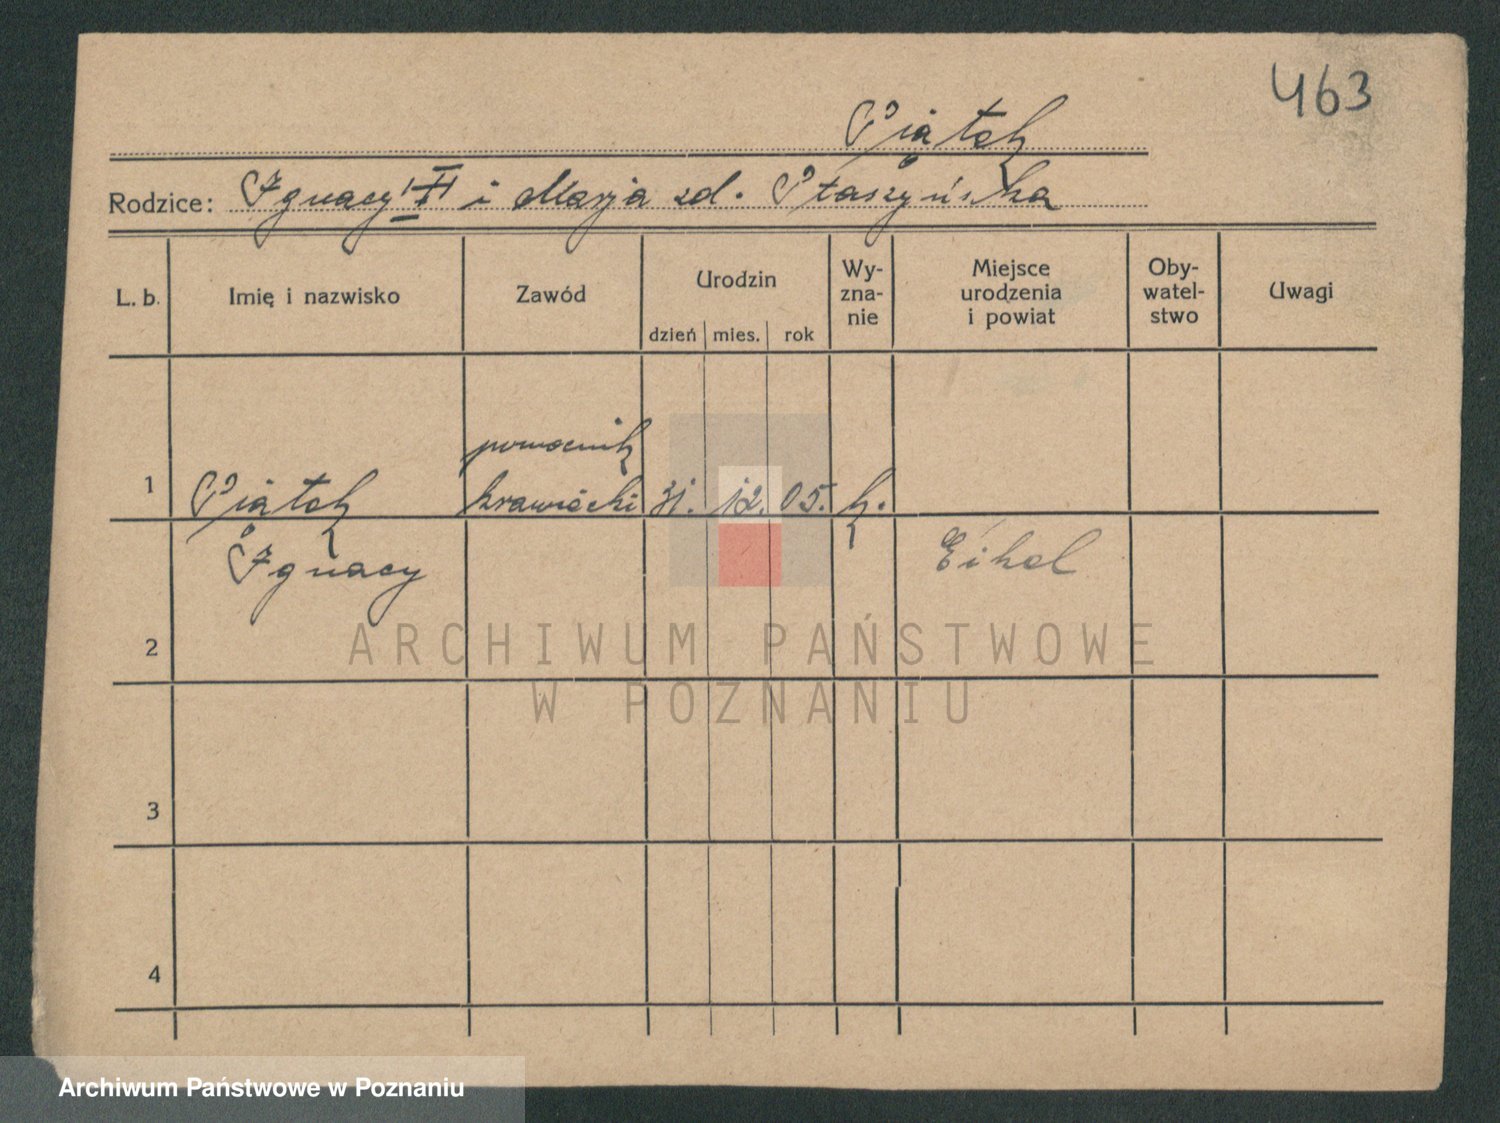 463
Piątek
Rodzice: Ignacy II i Marja zd. Ptaszyńska
L. b. Imię i nazwisko Zawód Urodzin dzień mies. rok Wyznanie Miejsce urodzenia i powiat Obywatelstwo Uwagi
pomocnik
1 Piątek krawiecki 31. 12. 05. k.
Ignacy Eikel
2
ARCHIWUM PAŃSTWOWE
W POZNANIU
3
4
Archiwum Państwowe w Poznaniu